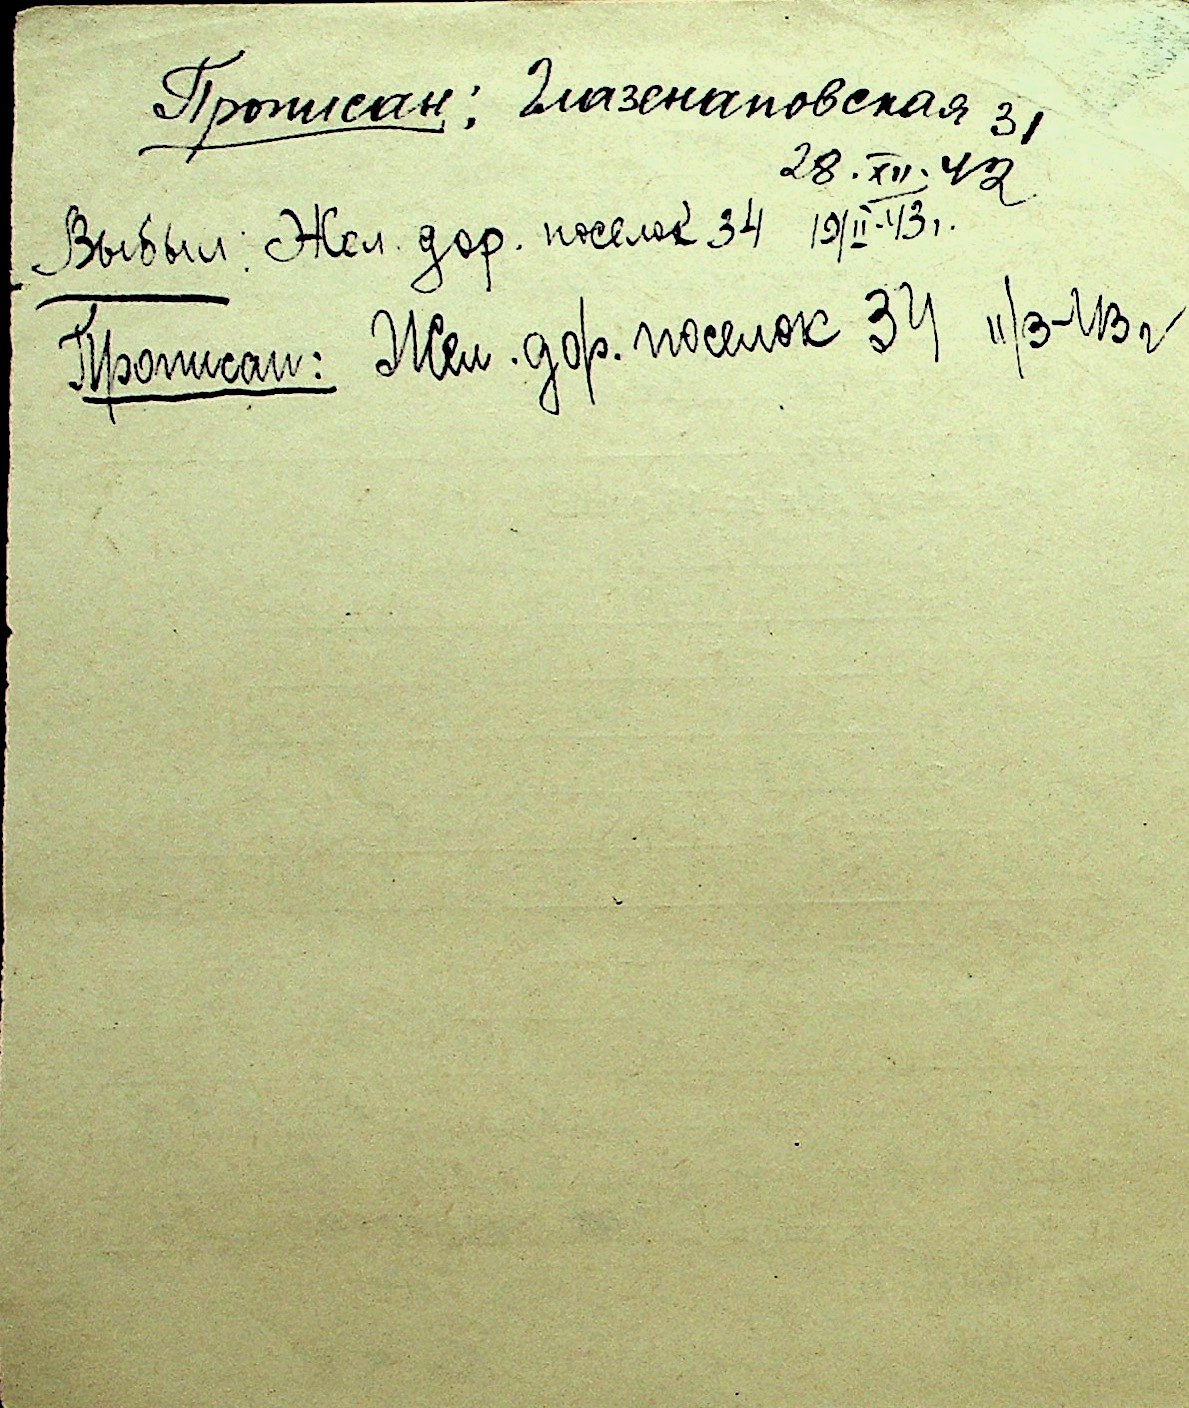 Прописан: Глазенаповская 31
28.XII.42
Выбыл: Жел. дор. поселок 34 19/II-43г.
Прописан: Жел. дор. поселок 34 11/3-43г